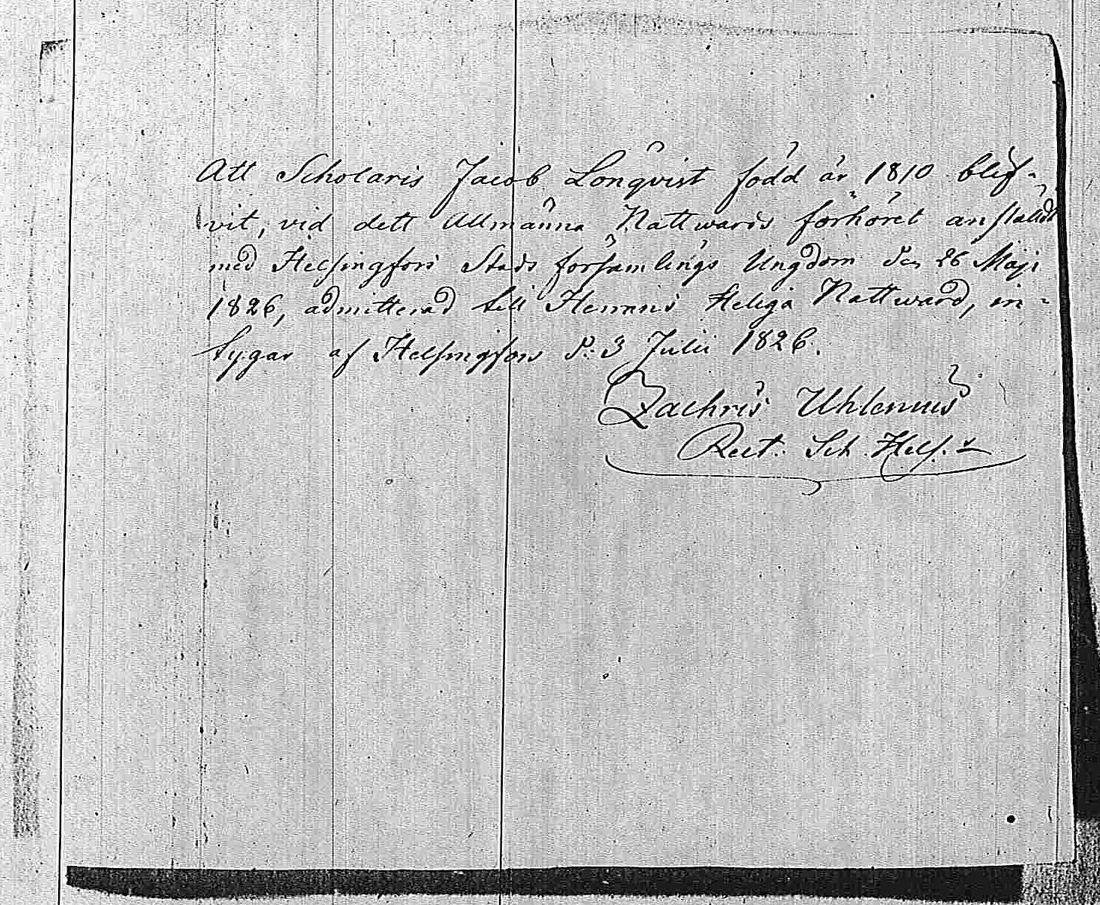 Att Scholaris Jacob Lönqvist född år 1810 blif-
vit, vid dett Allmänna Nattwards förhöret anstäldt
med Helsingfors Stads församlings Ungdom den 26 Maji
1826, admitterad till Herrans Heliga Nattward, in-
tygar af Helsingfors d. 3 Julii 1826.
Zachris Uhlenius
Rect. Sch. Helsf.